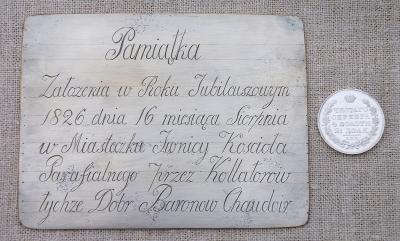 Pamiątka
Założenia w Roku Jubileuszowym
1826 dnia 16 miesiąca Sierpnia
w Miasteczku Iwnicy Kościoła
Parafialnego przez Kollatorów
tychże Dobr Baronow Chaudoir